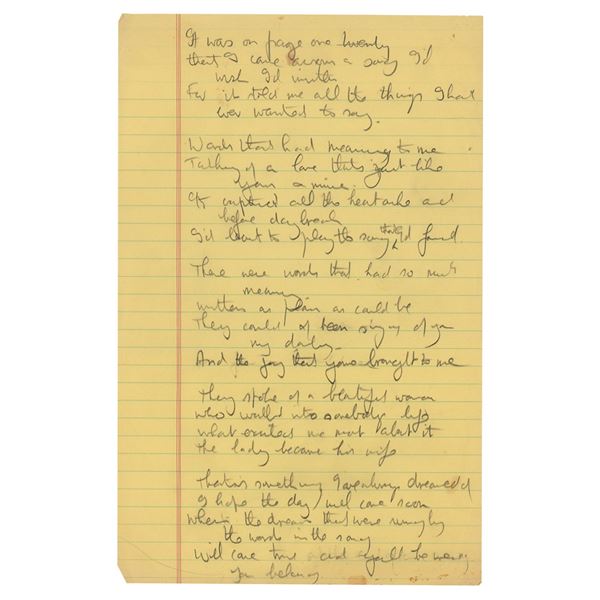 It was on page one twenty
that I came across a song I'd
wish I'd written
For it told me all the things that
ever wanted to say.
Words that had meaning to me
Talking of a love that's just like
yours & mine.
It captured all the heartache and
before daybreak
I'd learnt to play the song that I'd found.
There were words that had so much
meaning
written as plain as could be
They could of been singing of you
my darling
And the joy that you brought to me
They spoke of a beautiful woman
who walked into somebodys life
what excites me most about it
the lady became his wife
That is something I always dreamed of
I hope the day will come soon
the dreams that were
the words in the song
Will come true and you'll be